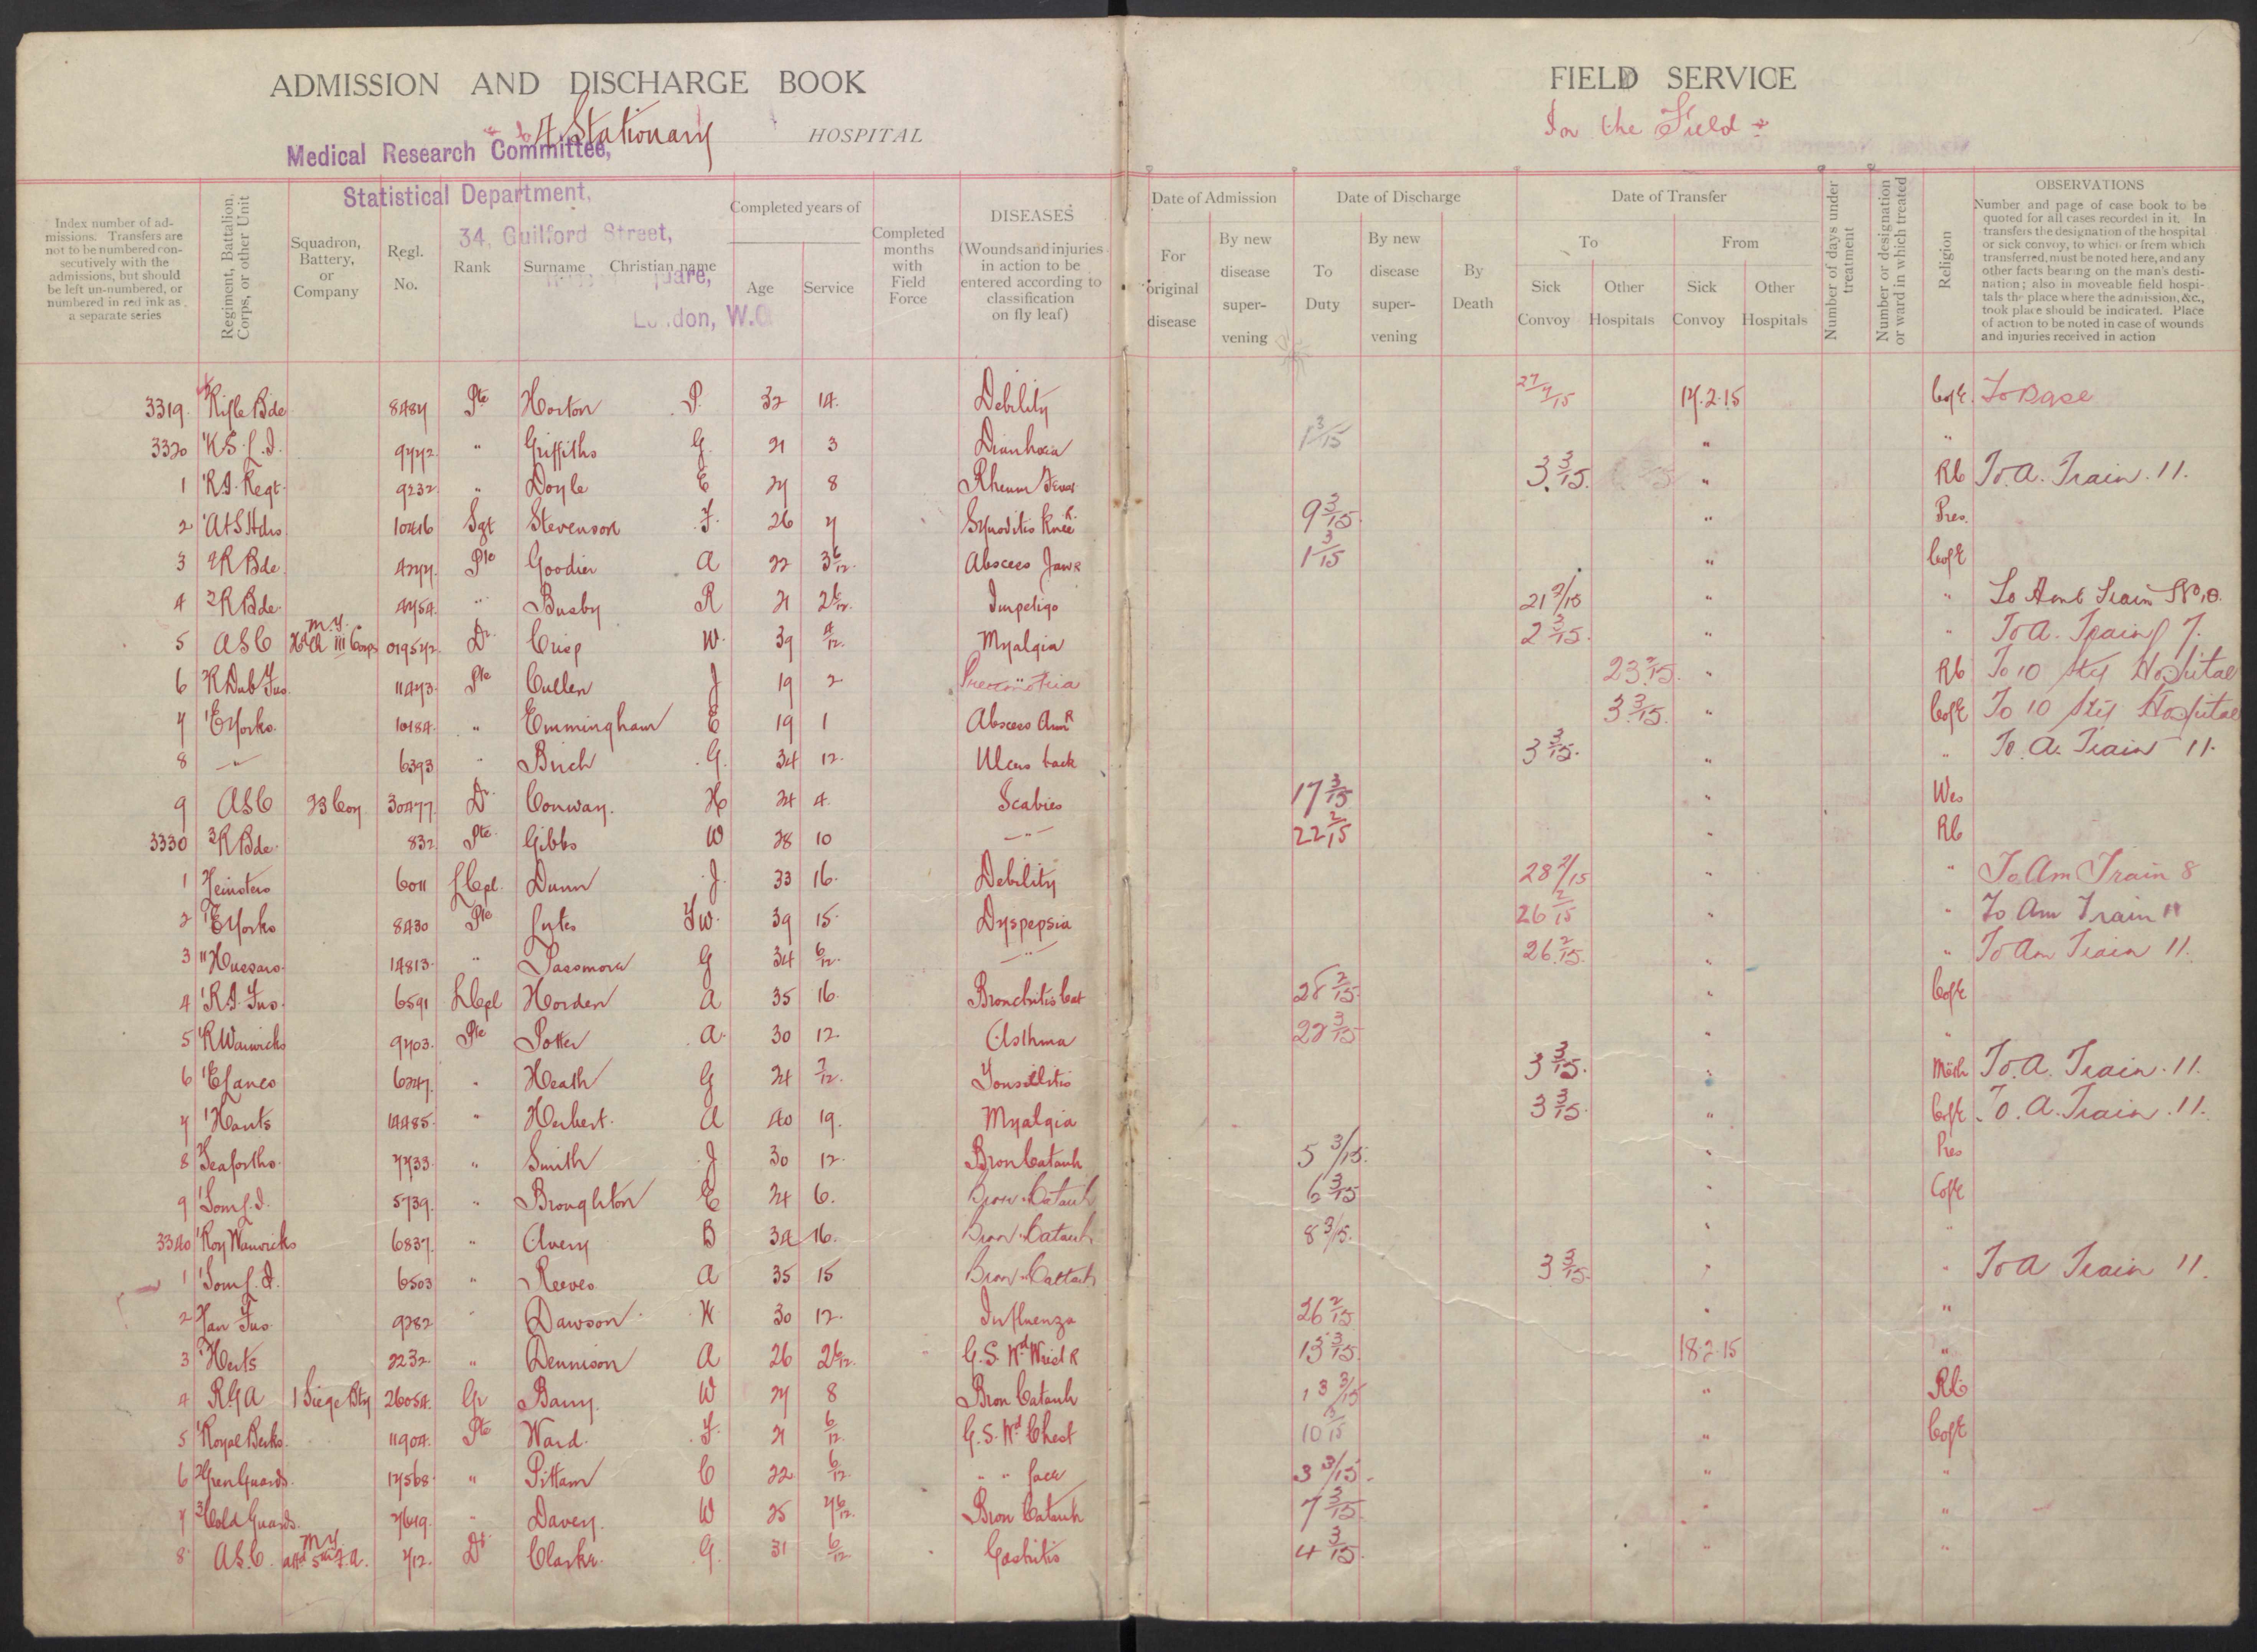 ADMISSION AND DISCHARGE BOOK
4 Stationary HOSPITAL
Medical Research Committee,
Statistical Department,
34, Guilford Street,
London, W.C.
FIELD SERVICE
In the Field
Index number of admissions. Transfers are not to be numbered consecutively with the admissions, but should be left un-numbered, or numbered in red ink as a separate series
Regiment, Battalion, Corps, or other Unit
Squadron, Battery, or Company
Regl. No.
Rank
Surname Christian name
Completed years of
Age Service
Completed months with Field Force
DISEASES
(Wounds and injuries in action to be entered according to classification on fly leaf)
Date of Admission
For original disease
By new disease supervening
Date of Discharge
To Duty
By new disease supervening
By Death
Date of Transfer
To
Sick Convoy
Other Hospitals
From
Sick Convoy
Other Hospitals
Number of days under treatment
Number or designation or ward in which treated
Religion
OBSERVATIONS
Number and page of case book to be quoted for all cases recorded in it. In transfers the designation of the hospital or sick convoy, to which or from which transferred, must be noted here, and any other facts bearing on the man's destination; also in moveable field hospitals the place where the admission, &c., took place should be indicated. Place of action to be noted in case of wounds and injuries received in action
3319 Rifle Bde 8484 Pte Horton P. 32 14. Debility 27/2/15 17.2.15 CofE. To Base
3320 1 K.S.L.I. 9772 " Griffiths G. 21 3 Diarrhoea 1 3/15 " "
1 1 R.I. Regt. 9232 " Doyle E 27 8 Rheum Fever 3 3/15 " RC To. A. Train. 11.
2 1 A+S Hdrs 10416 Sgt Stevenson J. 26 7 Synovitis Knee R. 9 3/15 " Pres.
3 2 R Bde 4277 Pte Goodier A 22 3 6/12 Abscess Jaw R 1 3/15 " CofE
4 2 R Bde 4754 " Busby R 21 2 6/12 Impetigo 21 2/15 " " To Amb Train No
5 ASC III Corps 019572 Dr. Crisp W. 39 4/12 Myalgia 2 3/15 " " To A. Train 7.
6 2 R Dub Fus 11473 Pte Cullen J 19 2 23 2/15 " RC To 10 Sty Hospital
7 1 E Yorks 10184 " Emmingham E 19 1 Abscess Arm R 3 3/15 " CofE To 10 Sty Hospital
8 " 6393 " Birch G. 34 12 Ulcers back 3 3/15 " " To. A. Train 11.
9 ASC 23 Coy 30477 Dr. Conway. H 24 4 Scabies 17 3/15 " Wes
3330 3 R Bde 832 Pte Gibbs W 28 10 " 22 2/15 " RC
1 2 Leinsters 6011 LCpl. Dunn J. 33 16 Debility 28 2/15 " " To Am Train 8
2 1 E Yorks 8430 Pte Lutes 39 15 Dyspepsia 26 2/15 " " To Am Train 11
3 11 Hussars 14813 " Passmore G 34 6/12 " 26 2/15 " " To Am Train 11.
4 1 R.I. Fus. 6591 LCpl Horden A 35 16 Bronchitis Cat 28 2/15 " CofE
5 1 R Warwicks 9703 Pte Potter A. 30 12 Asthma 22 3/15 " "
6 1 E Lancs 6247 " Heath G 24 7/12 Tonsillitis 3 3/15 " Meth To. A. Train. 11.
7 1 Hants 14485 " Herbert. A 40 19. Myalgia 3 3/15 " CofE To. A. Train. 11.
8 2 Seaforths 7733 " Smith J 30 12 Bron Catarrh 5 3/15 " Pres
9 1 Som L.I. 5739 " Broughton E 24 6. Bron Catarrh 6 3/15 " CofE
3340 1 Roy Warwicks 6837 " Avery B 34 16. Bron Catarrh 8 3/15 " "
1 1 Som L.I. 6503 " Reeves A 35 15 Bron Cattarh 3 3/15 " " To A Train 11.
2 2 Lan Fus 9282 " Dawson 30 12. Influenza 26 2/15 " "
3 1 Herts 2232 " Dennison A 26 2 6/12 G.S. Wd Wrist R 13 3/15 18.2.15 "
4 RGA 1 Siege Bty 26054 Gr Barry. W 27 8 Bron Catarrh 13 3/15 " RC
5 1 Royal Berks. 11904 Pte Ward. J. 21 6/12 G.S. Wd Chest 10 3/15 " CofE
6 2 Gren Guards 17568 " Pittam C 22 6/12 " " face 3 3/15 " "
7 3 Cold Guards 7619 " Davey. W 25 7 6/12 Bron Catarrh 7 3/15 " "
8 ASC. attd 5th F.A. 712 Dr Clarke. G. 31 6/12 Gastritis 4 3/15 " "